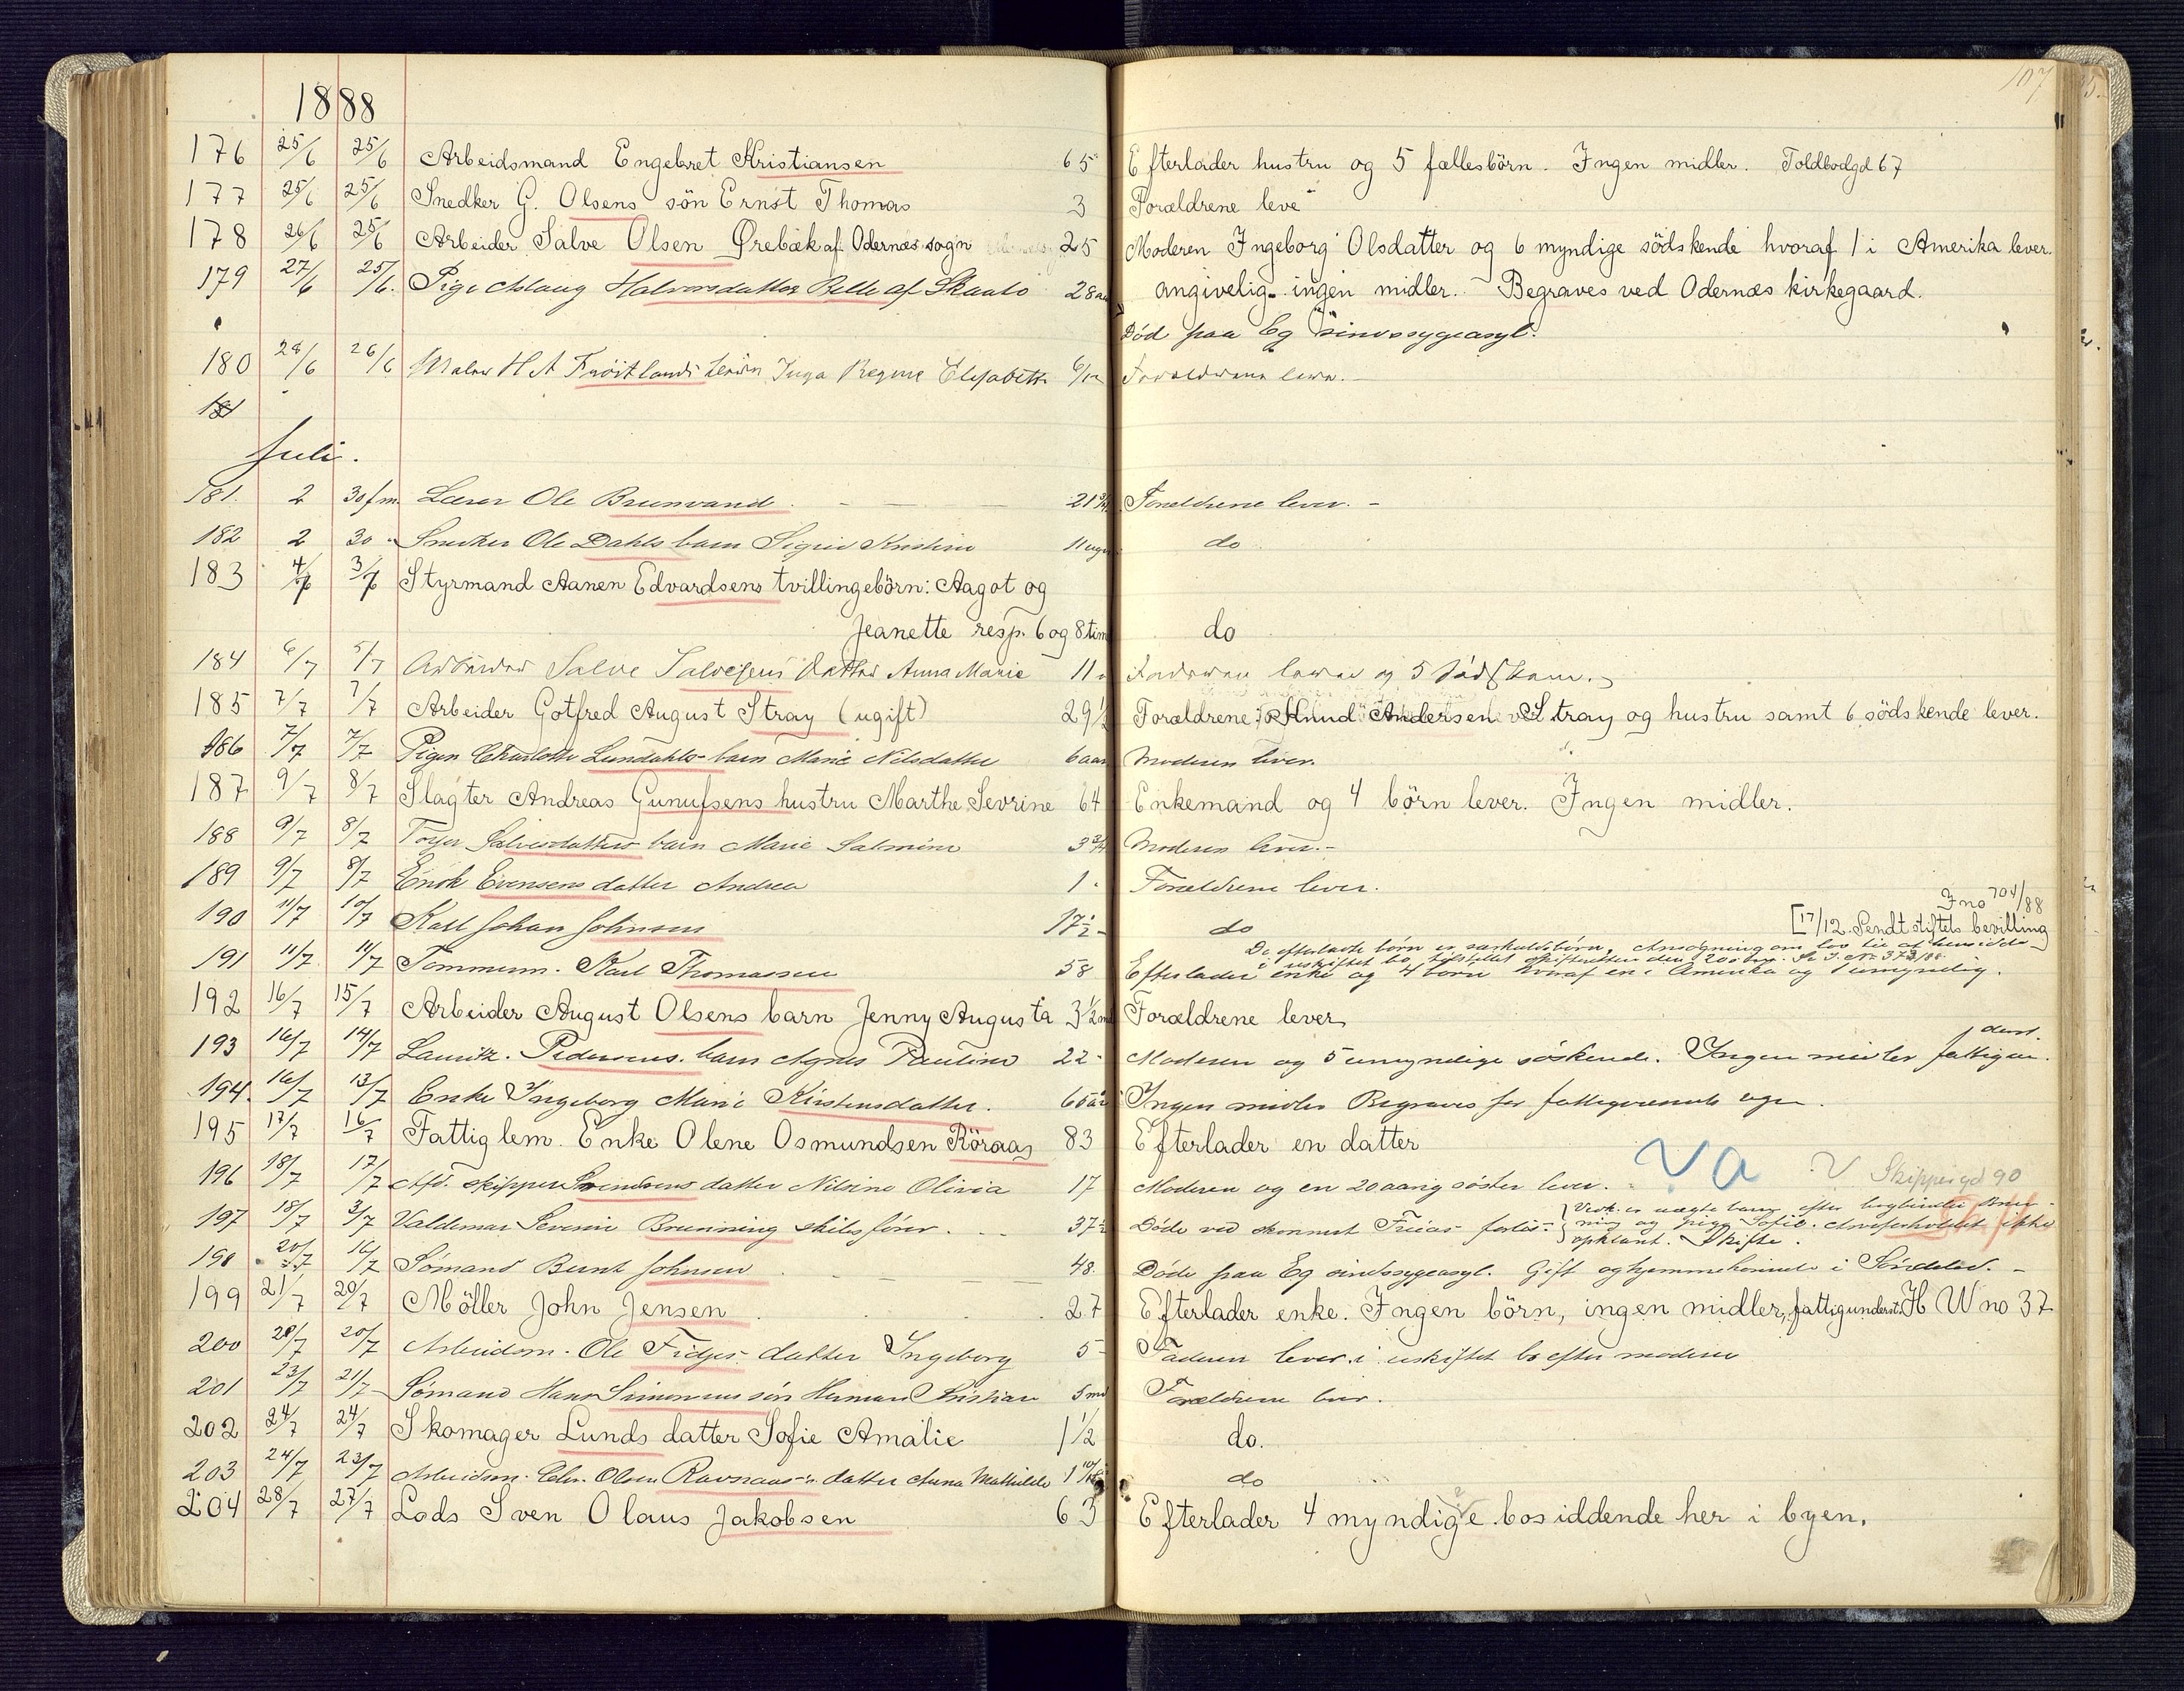 107
1888
176 25/6 25/6 Arbeidsmand Engebret Kristiansen 65 Efterlader hustru og 5 fællesbörn. Ingen midler. Toldbodgd 67
177 25/6 25/6 Snedker G. Olsens sön Ernst Thomas 3 Forældrene leve
178 26/6 25/6 Arbeider Salve Olsen Ørebæk af Odernæs sogn 25 Moderen Ingeborg Olsdatter og 6 myndige södskende hvoraf 1 i Amerika lever.
179 27/6 25/6. Pige Aslaug Halvorsdatter Belle af Skaatö 28 aar angivelig ingen midler. Begraves ved Odernæs kirkegaard.
Död paa Eg sindssygeasyl.
180 28/6 26/6 Maler H A Fröitlands Inga Regine Elisabeth 6/12 Forældrene lever.
181
Juli.
181. 2 30 fm. Lærer Ole Brunvand 21 3/4 Forældrene lever. -
182 2 30 Snedker Ole Dahls barn Sigrid Kristine 11 uger do
183 4/7 3/7 Styrmand Aanen Edvardsens tvillingebörn: Aagot og
Jeanette resp. 6 og 8 tim do
184 6/7 5/7 Arbeider Salve Salvesens datter Anna Marie 11 Forældrene lever og 5 södskende.
185 7/7 7/7 Arbeider Gotfred August Stray (ugift) 29 1/2 Forældrene Knud Andersen Stray og hustru samt 6 södskende lever.
186 7/7 7/7 Pigen Charlotte Lundahls barn Marie Nilsdatter 6 aar Moderen lever.
187 9/7 8/7 Slagter Andreas Gunufsens hustru Marthe Sevrine 64 Enkemand og 4 börn lever. Ingen midler.
188 9/7 8/7 Salvesdatters barn Marie Salmine 3 3/4 Moderen lever. -
189 9/7 8/7 Enok Evensens datter Andrea 1 Forældrene lever.
190 11/7 10/7 Karl Johan Johnsen 17 1/2 do
J no 704/88
[17/12. Sendt stiftets bevilling
De efterladte börn er særkuldsbörn. Ansögning om lov til at hensidde
i uskiftet bo, tilstillet skifteretten den
191 11/7 11/7 Tømmerm. Karl Thomassen 58 Efterlader enke og 4 börn hvoraf en i Amerika og 1 umyndig.
192 16/7 15/7 Arbeider August Olsens barn Jenny Augusta 3 1/2 md Forældrene lever
193 16/7 14/7 Lauritz Pedersens barn Agnes Pauline 22 Moderen og 5 umyndige söskende. Ingen midler fattigun-
derst.
194. 16/7 13/7 Enke Ingeborg Marie Kirstensdatter. 65 aar Ingen midler Begraves for fattigvæsenets regn.
195 17/7 16/7 Fattiglem. Enke Olene Osmundsen Röraas 83 Efterlader en datter
196 18/7 17/7 Afd. skipper Svendsens datter Nilsine Olivia 17 Moderen og en 20 aarig söster lever. Va Skippergd 90
197 18/7 3/7 Valdemar Severin Brunning skibsförer 37 1/2 Döde ved skonnert Freias forlis
Vedk. er uægte barn efter Brun-
ning og pige Sofie. Arveforholdet ikke
opklaret. Skifte.
198 20/7 16/7 Sömand Bernt Johnsen 48. Döde paa Eg sindssygeasyl. Gift og hjemmehörende i Söndeled. -
199 21/7 20/7 Möller John Jensen 27 Efterlader enke. Ingen börn, ingen midler, fattigunderst. H W no 37
200 20/7 20/7 Arbeidsm. Ole Fidjes datter Ingeborg 5 Faderen lever i uskiftet bo efter moderen
201 23/7 21/7 Sömand Hans Simonsens sön Herman Kristian 5 md Forældrene lever.
202 24/7 24/7 Skomager Lunds datter Sofie Amalie 1 1/2 do.
203 24/7 23/7 Arbeidsm. Chr. Olsen Ravnaas's datter Anna Mathilde 1 10/12 do
204 28/7 27/7 Lods Sven Olaus Jakobsen 63 Efterlader 4 myndige bosiddende her i byen.